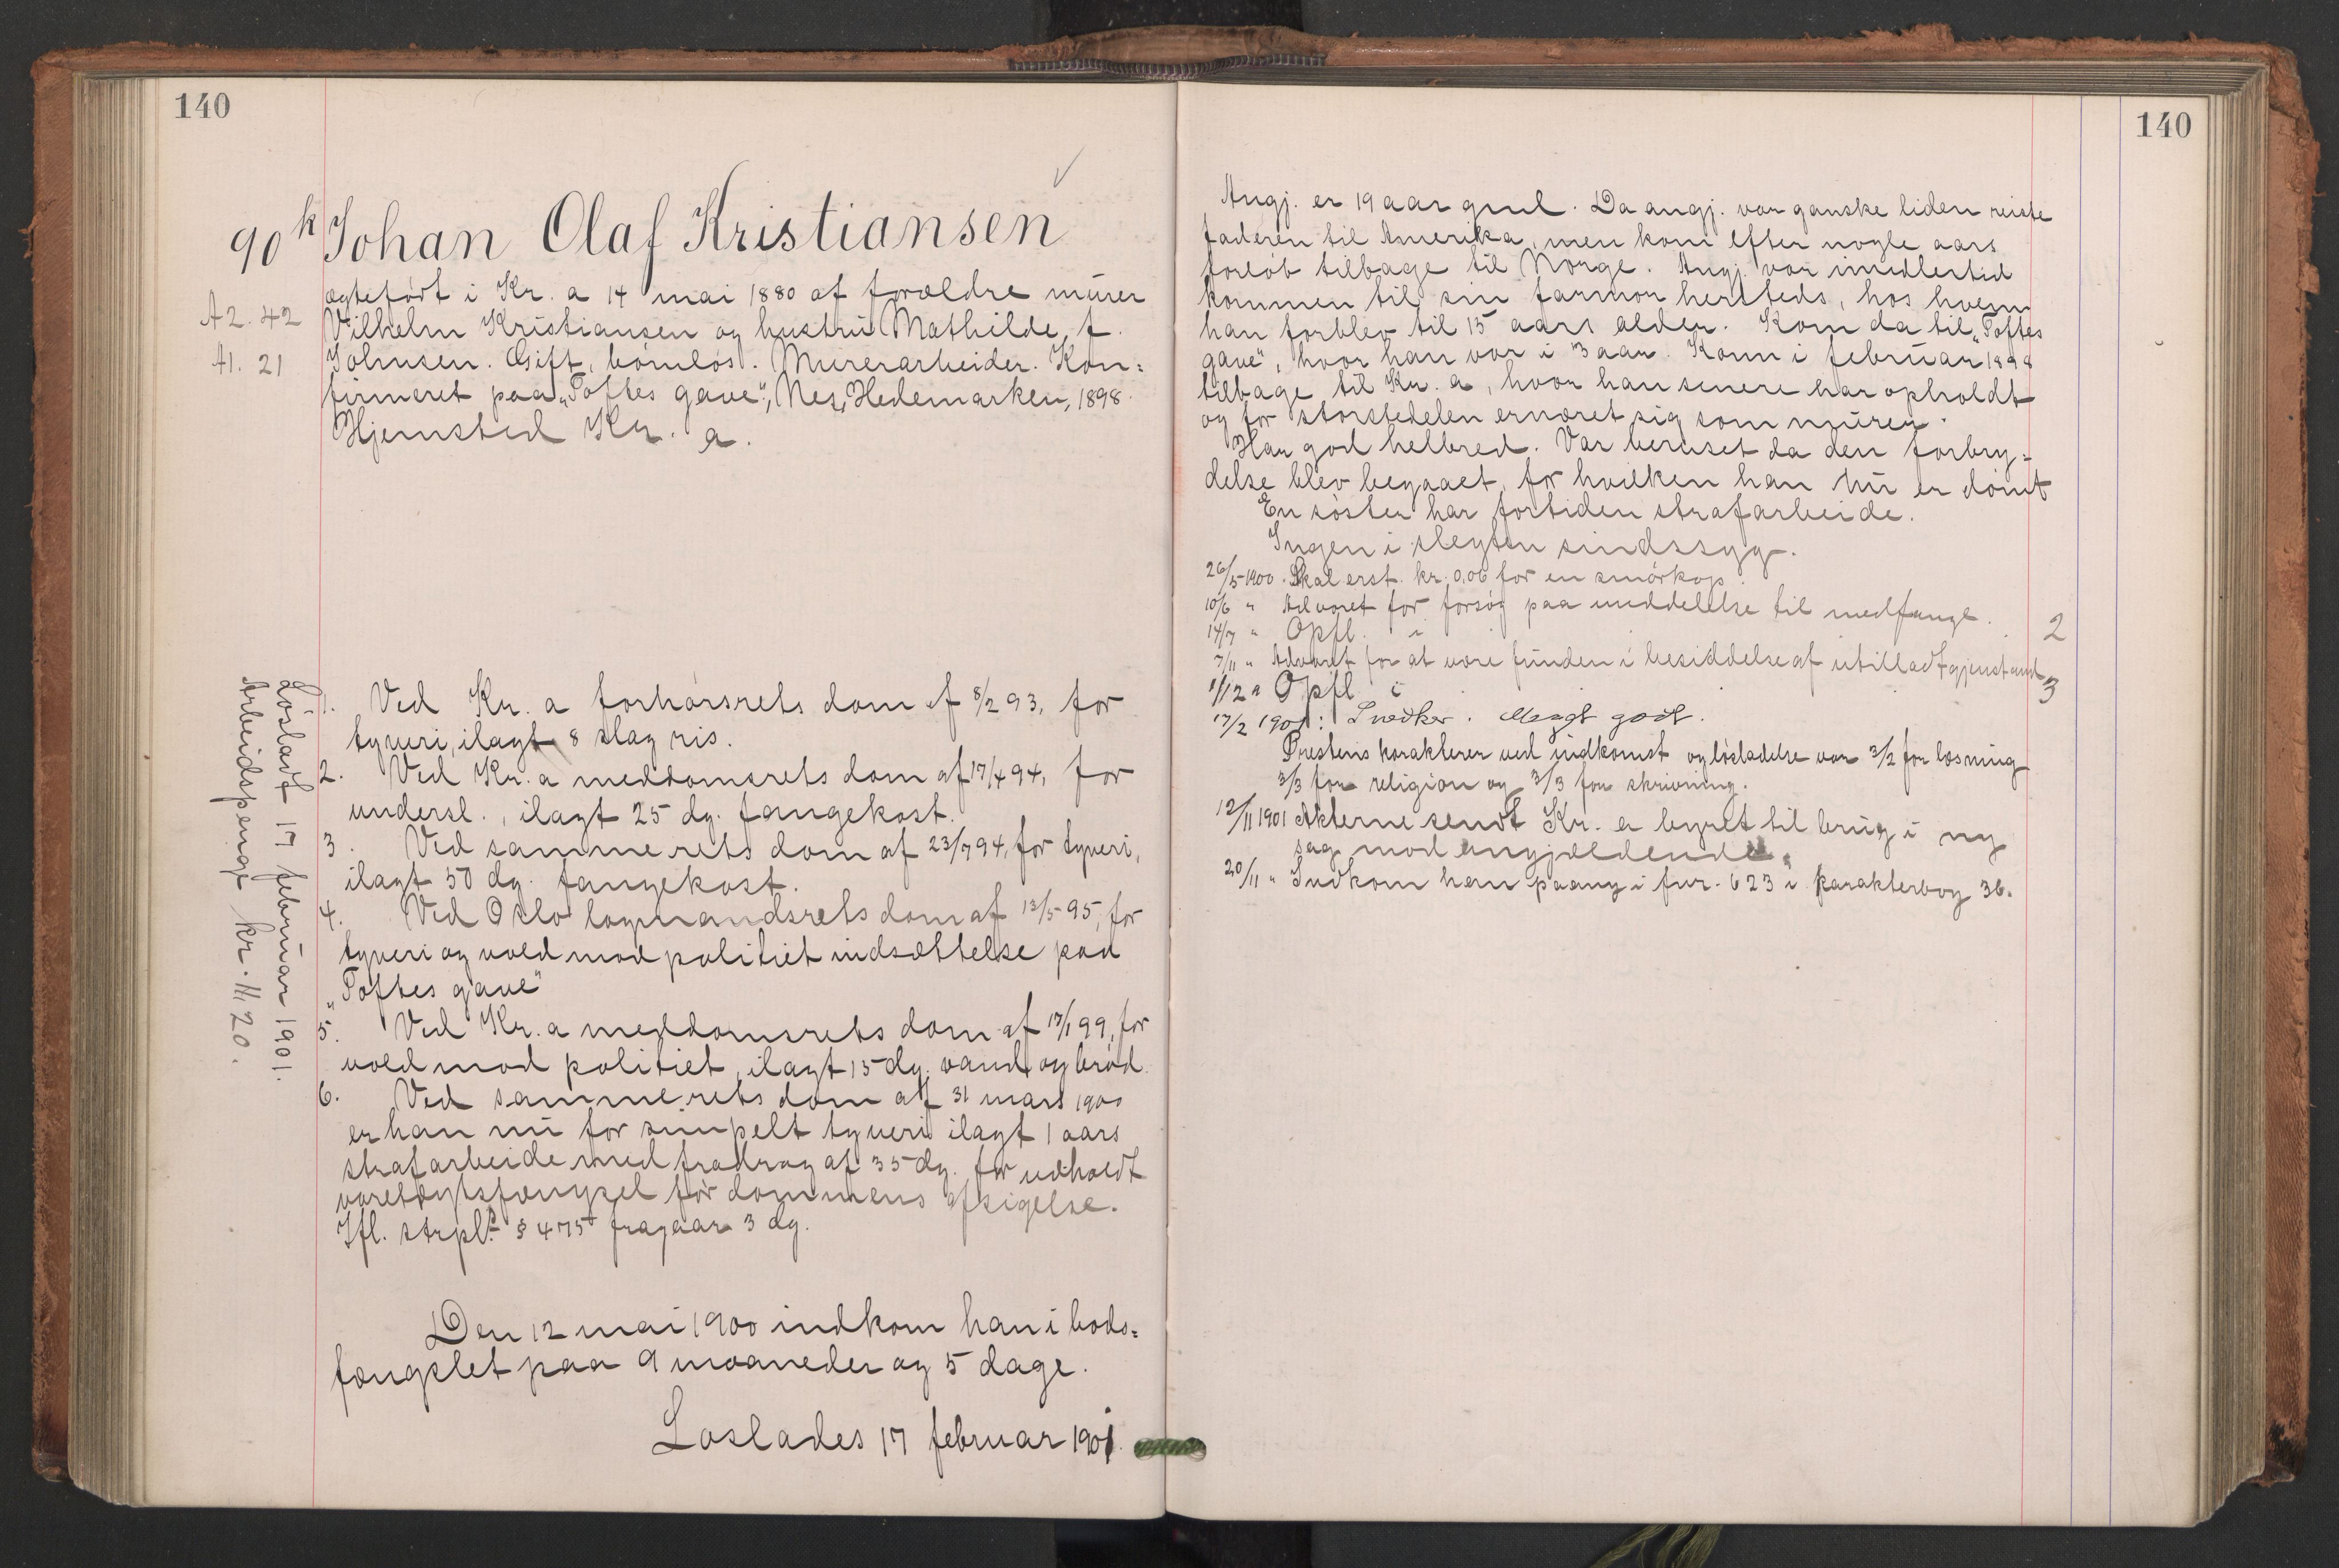 140
90k Johan Olaf Kristiansen
A2. 42
A1. 21
ægtefødt i Kr.a 14 mai 1880 af forældre murer
Vilhelm Kristiansen og hustru Mathilde, f.
Johnsen. Gift, børnløs. Murerarbeider. Kon=
firmeret paa „Toftes gave", Nes, Hedemarken, 1898.
Hjemsted Kr.a.
Løsladt 17 februar 1901.
Arbeidspenge kr. 11,20.
1. Ved Kr.a forhørsrets dom af 8/2 93, for
tyveri, ilagt 8 slag ris.
2. Ved Kr.a meddomsrets dom af 17/4 94, for
undersl., ilagt 25 dg. fangekost.
3. Ved samme rets dom af 23/7 94, for tyveri,
ilagt 50 dg. fangekost.
4. Ved Oslo lagmandsrets dom af 13/5 95, for
tyveri og vold mod politiet indsættelse paa
„Toftes gave"
5. Ved Kr.a meddomsrets dom af 17/1 99, for
vold mod politiet, ilagt 15 dg. vand og brød.
6. Ved samme rets dom af 31 mars 1900
er han nu for simpelt tyveri ilagt 1 aars
strafarbeide med fradrag af 35 dg. for udholdt
varetægtsfængsel før dommens afsigelse.
Ifl. strpl. § 475 fragaar 3 dg.
Den 12 mai 1900 indkom han i bods=
fængslet paa 9 maaneder og 5 dage.
Løslades 17 februar 1901.
140
Angj. er 19 aar gml. Da angj. var ganske liden reiste
faderen til Amerika, men kom efter nogle aars
forløb tilbage til Norge. Angj. var imidlertid
kommen til sin farmor hersteds, hos hvem
han forblev til 15 aars alder. Kom da til „Toftes
gave", hvor han var i 3 aar. Kom i februar 1898
tilbage til Kr.a, hvor han senere har opholdt
og for størstedelen ernæret sig som murer.
Har god helbred. Var beruset da den forbry=
delse blev begaaet, for hvilken han nu er dømt
En søster har fortiden strafarbeide.
Ingen i slegten sindssyg.
26/5 1900. Skal erst. kr. 0,06 for en smørkop.
10/6 " Advaret for forsøg paa meddelelse til medfange.
14/7 " Opfl. i 2
7/11 " Advaret for at være funden i besiddelse af utilladt gjenstand
1/12 " Opfl. i 3
17/2 1901: Snedker. Meget godt.
Prestens karakterer ved indkomst og løsladelse var 3/2 for læsning
3/3 for religion og 3/3 for skrivning.
12/11 1901 Akterne sendt Kr.a byret til brug i ny
sag mod angjældende.
20/11 " Indkom han paany i fnr. 623 i karakterbog 36.